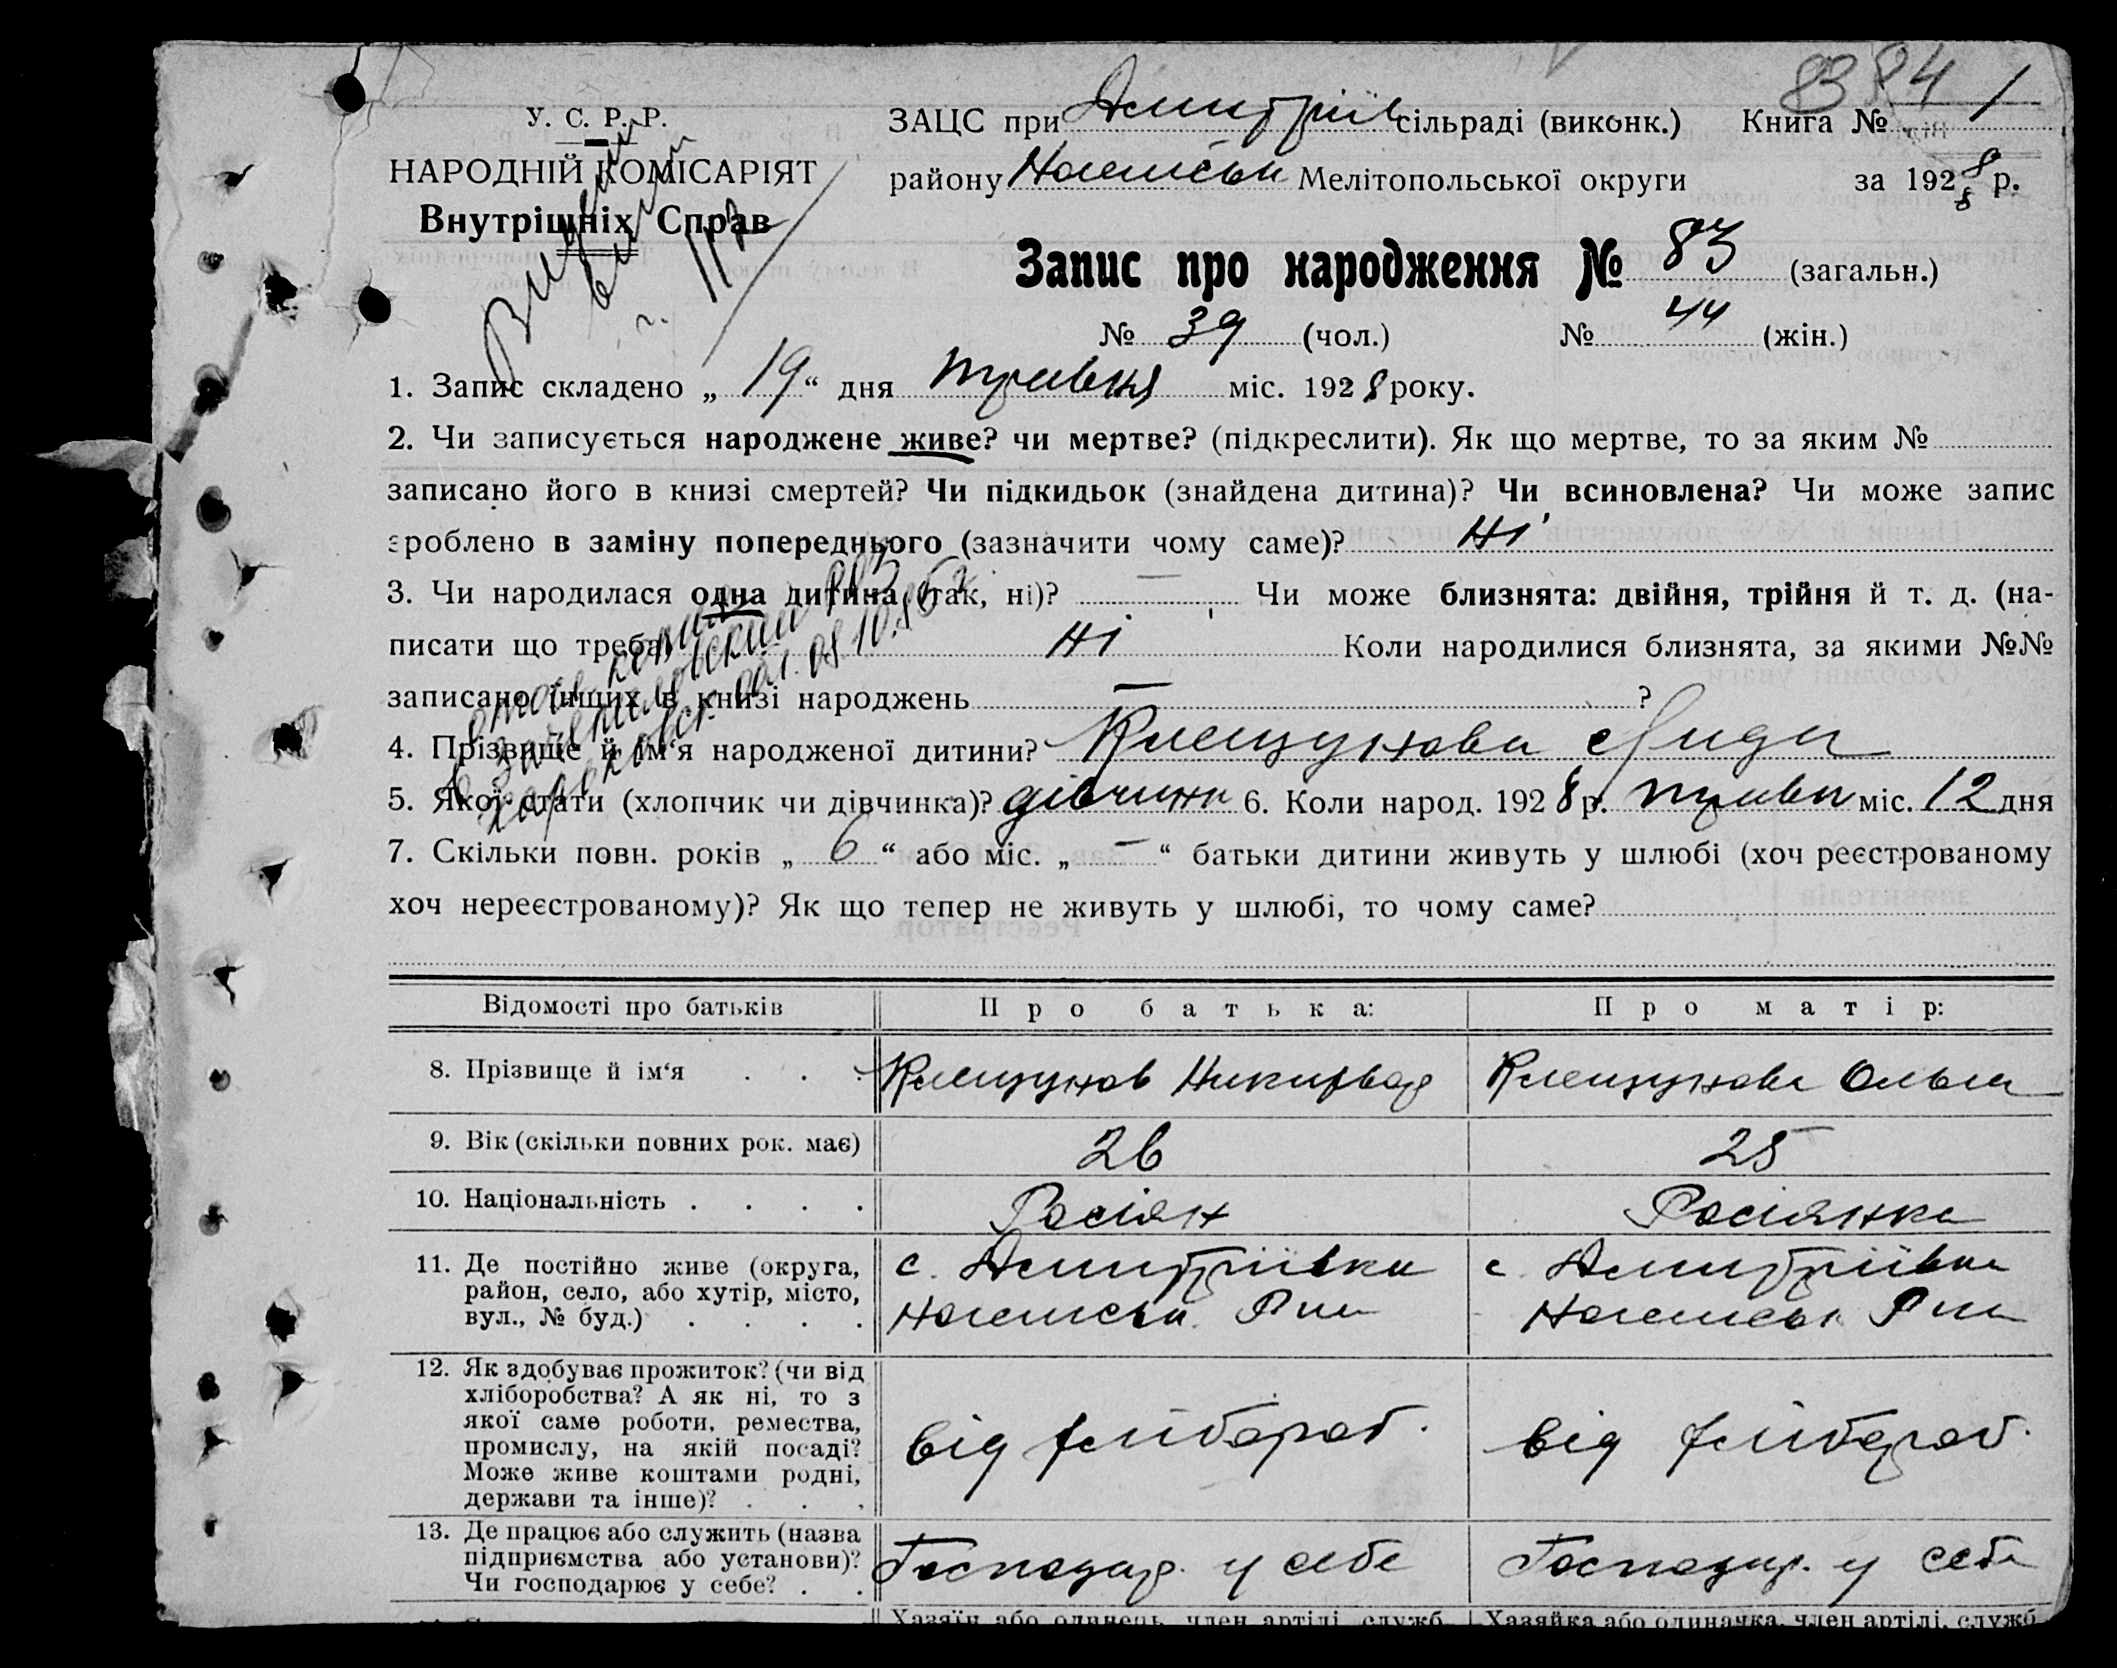 83 84
У. С. Р. Р.
НАРОДНІЙ КОМІСАРІЯТ
Внутрішніх Справ
ЗАЦС при Дмитрїїв сільраді (виконк.) Книга № 1
району Мелітопольської округи за 1928 р.
Запис про народження № 83 (загальн.)
№ 39 (чол.) № 44 (жін.)
1. Запис складено „ 19 “ дня травня міс. 1928 року.
2. Чи записується народжене живе? чи мертве? (підкреслити). Як що мертве, то за яким №
записано його в книзі смертей? Чи підкидьок (знайдена дитина)? Чи всиновлена? Чи може запис
зроблено в заміну попереднього (зазначити чому саме)? Ні
3. Чи народилася одна дитина (так, ні)? — Чи може близнята: двійня, трійня й т. д. (на-
писати що треба) Ні Коли народилися близнята, за якими №№
записано інших в книзі народжень — ?
4. Прізвище й ім‘я народженої дитини? Клещунова Лида
5. Якої стати (хлопчик чи дівчинка)? дівчинк 6. Коли народ. 1928 р. травн міс. 12 дня
7. Скільки повн. років „ 6 “ або міс. „ — “ батьки дитини живуть у шлюбі (хоч реєстрованому
хоч нереєстрованому)? Як що тепер не живуть у шлюбі, то чому саме?
Відомості про батьків Про батька: Про матір:
8. Прізвище й ім‘я . . . Клещунов Никифор Клещунова Ольга
9. Вік (скільки повних рок. має) 26 25
10. Національність . . . . Росіян Росіянка
11. Де постійно живе (округа, с. Дмитріївка с. Дмитріївка
район, село, або хутір, місто,
вул., № буд.) . . . .
12. Як здобуває прожиток? (чи від
хліборобства? А як ні, то з
якої саме роботи, ремества, від хлібороб. від хлібороб.
промислу, на якій посаді?
Може живе коштами родні,
держави та інше)? . . .
13. Де працює або служить (назва
підприємства або установи)? Господар. у себе Господар. у себе
Чи господарює у себе? . .
Хазяїн або одинець, член артілі, служб. Хазяйка або одиначка, член артілі, служб.